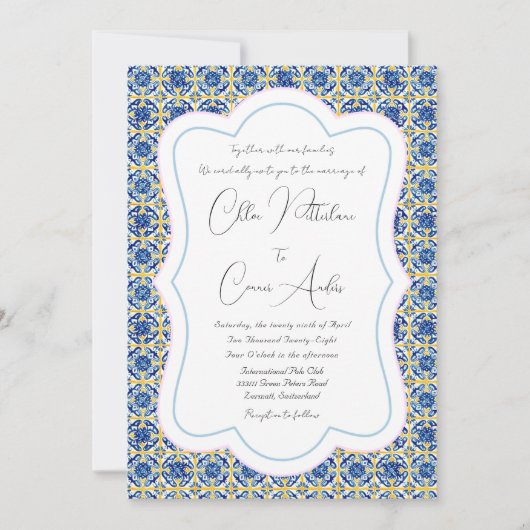 Together with our families
We cordially invite you to the marriage of
Chloe Netterlane
To
Conner Anders
Saturday, the twenty ninth of April
Two Thousand Twenty-Eight
Four O'clock in the afternoon
International Polo Club
333111 Green Peters Road
Zermatt, Switzerland
Reception to follow